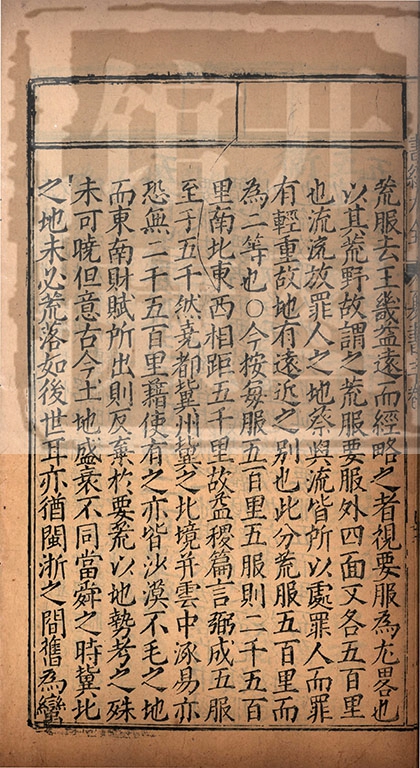 荒服去王畿益遠而經略之者視要服為尤畧也
以其荒野故謂之荒服要服外四面又各五百里
也流流放罪人之地蔡與流皆所以處罪人而罪
有輕重故地有遠近之別也此分荒服五百里而
為二等也○今按每服五百里五服則二千五百
里南北東西相距五千里故益稷篇言弼成五服
至于五千然堯都冀州冀之北境并雲中涿易亦
恐無二千五百里藉使有之亦皆沙漠不毛之地
而東南財賦所出則反棄於要荒以地勢考之殊
未可曉但意古今土地盛衰不同當舜之時冀北
之地未必荒落如後世耳亦猶閩浙之間舊為蠻